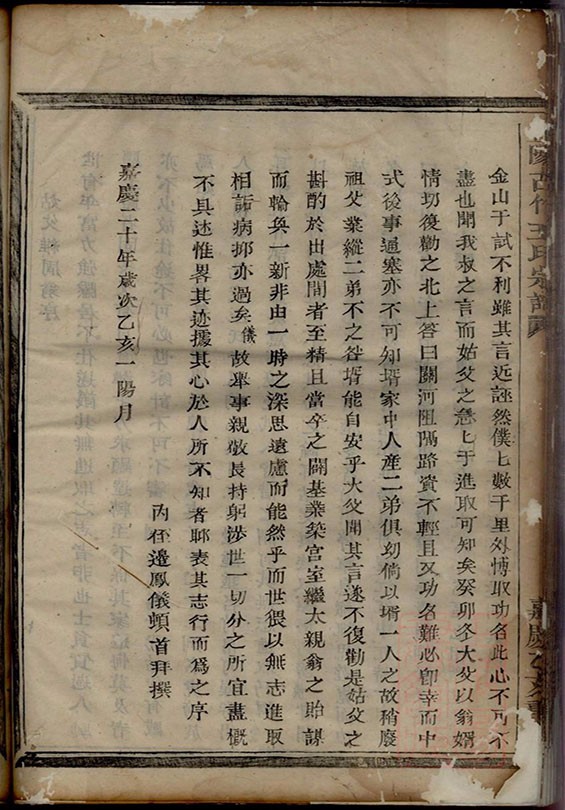 金山于試不利雖其言近誣然僕七數千里外博取功名此心不可不
盡也聞我叔之言而姑父之急上于進取可知矣癸卯冬大父以翁婿
情切復勸之北上答曰關河阻隔路資不輕且又功名難必卽幸而中
式後事通塞亦不可知壻家中人産二弟俱幼倘以壻一人之故稍廢
祖父業縱二弟不之咎壻能自安乎大父聞其言遂不復勸是姑父之
斟酌於出處間者至精且當卒之闢基業築宮室繼太親翁之貽謀
而輪奐一新非由一時之深思遠慮而能然乎而世猥以無志進取
相詬病抑亦過矣儀故舉事親敬長持躬涉世一切分之所宜盡概
不具述惟畧其迹據其心於人所不知者聊表其志行而爲之序
嘉慶二十年歲次乙亥一陽月
內侄邊鳳儀頓首拜撰
王氏宗譜
嘉慶乙亥